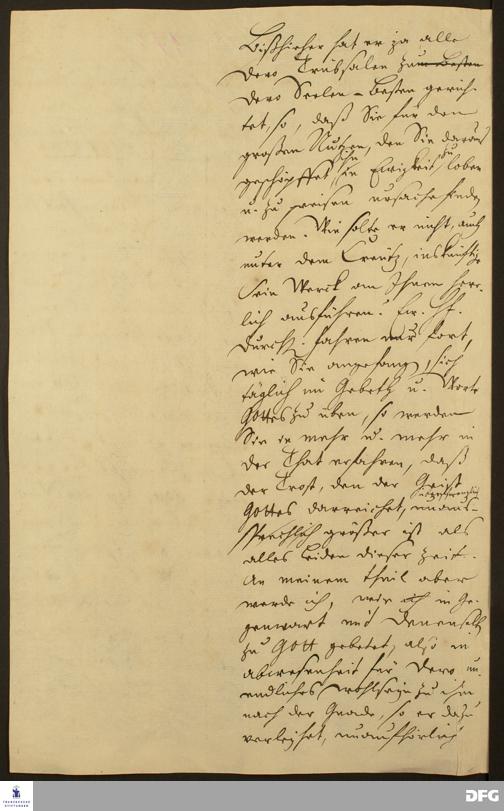 Bißhieher hat er ja alle
Dero Trübsalen zum Besten
Dero Seelen-Besten gerich-
tet, so, daß Sie für den
großen Nutzen, den Sie daraus
geschöpffet, ihn in Ewigkeit zu loben
u. zu preisen ursache finden
werden. Wie solte er nicht, auch
unter dem Creutz, inskünftige
Sein Werck an Ihnen herr-
lich ausführen? Ew. Hf.
Durchl. fahren nur fort,
wie Sie angefangen, sich
täglich im Gebeth u. Worte
Gottes zu üben, so werden
Sie ie mehr u. mehr in
der That erfahren, daß
der Trost, den der Geist
Gottes darreichet, unaus-
sprechlich größer ist als
alles Leiden dieser Zeit.
An meinem theil aber
werde ich, wie ich in Ge-
genwart mit Denenselben
zu Gott gebetet, also in
abwesenheit für Dero un-
endliches wohlseyn zu ihm
nach der Gnade, so er dazu
verleihet, unaufhörlich
FRANCKESCHE
STIFTUNGEN
DFG